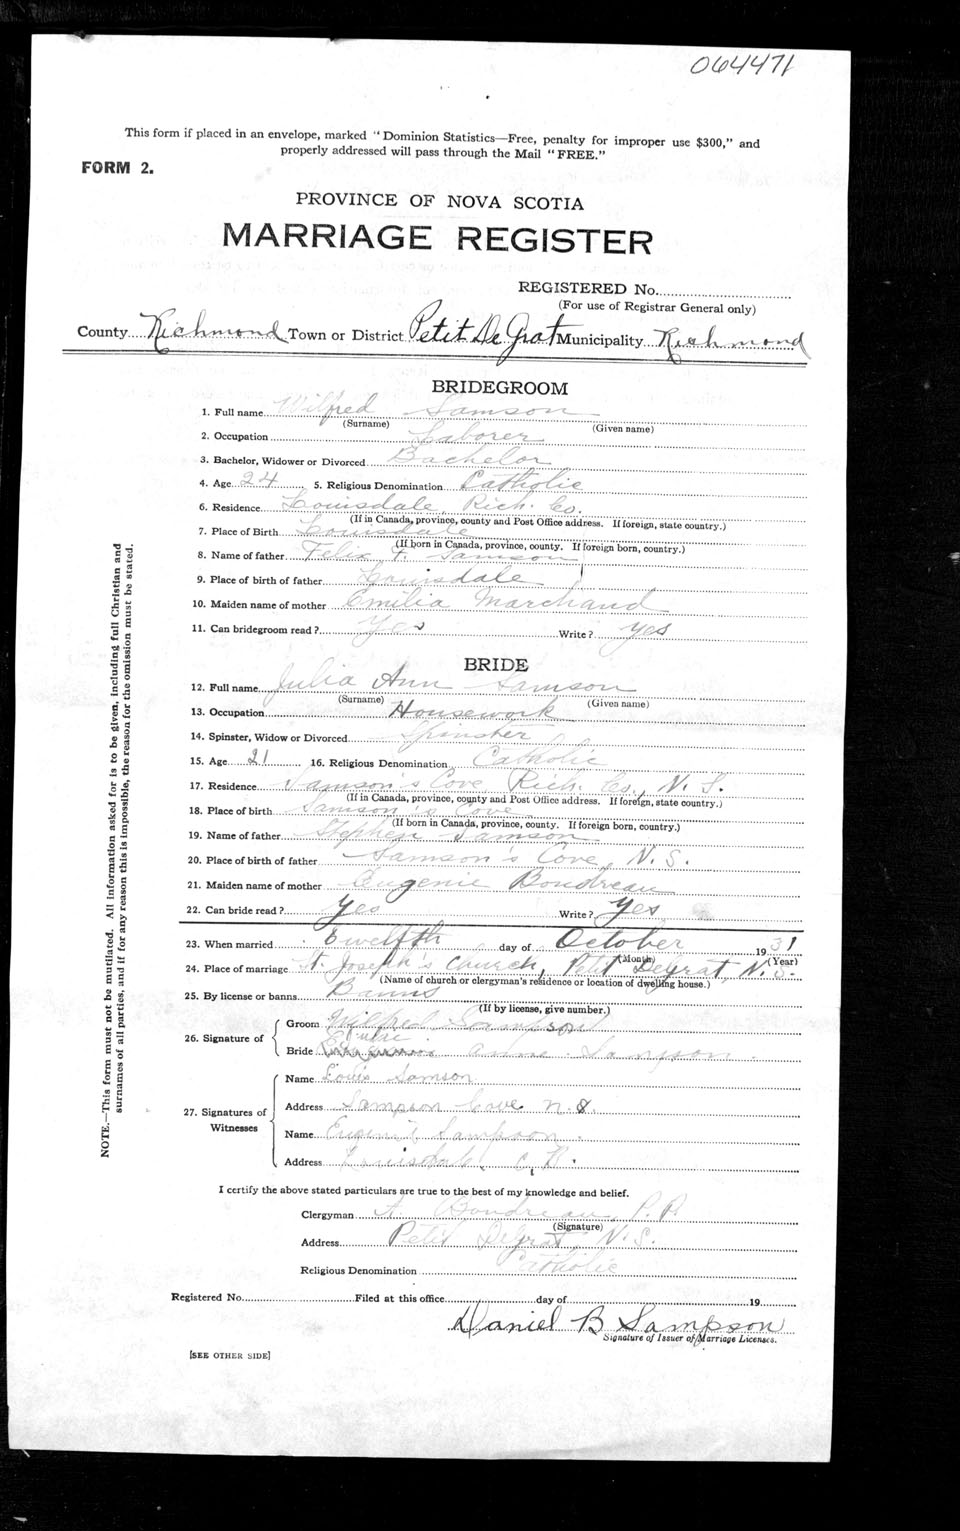 064471
This form if placed in an envelope, marked "Dominion Statistics—Free, penalty for improper use $300," and
properly addressed will pass through the Mail "FREE."
FORM 2.
PROVINCE OF NOVA SCOTIA
MARRIAGE REGISTER
REGISTERED No.
(For use of Registrar General only)
County Richmond Town or District Petit De Grat Municipality Richmond
BRIDEGROOM
1. Full name Wilfred Samson
(Surname) (Given name)
2. Occupation Laborer
3. Bachelor, Widower or Divorced Bachelor
4. Age 24 5. Religious Denomination Catholic
6. Residence Louisdale, Rich. Co.
(If in Canada, province, county and Post Office address. If foreign, state country.)
7. Place of Birth Louisdale
(If born in Canada, province, county. If foreign born, country.)
8. Name of father Felix F. Samson
9. Place of birth of father Louisdale
10. Maiden name of mother Emilia Marchand
11. Can bridegroom read? Yes Write? yes
BRIDE
12. Full name Julia Ann Samson
(Surname) (Given name)
13. Occupation Housework
14. Spinster, Widow or Divorced Spinster
15. Age 21 16. Religious Denomination Catholic
17. Residence Samson's Cove Rich. Co., N. S.
(If in Canada, province, county and Post Office address. If foreign, state country.)
18. Place of birth Samson's Cove
(If born in Canada, province, county. If foreign born, country.)
19. Name of father Stephen Samson
20. Place of birth of father Samson's Cove, N. S.
21. Maiden name of mother Eugenie Boudreau
22. Can bride read? Yes Write? Yes
23. When married twelfth day of October 1931
(Month) (Year)
24. Place of marriage St. Joseph's Church, Petit Degrat, N. S.
(Name of church or clergyman's residence or location of dwelling house.)
25. By license or banns Banns
(If by license, give number.)
26. Signature of
Groom Wilfred Sampson
Bride Anne Sampson
27. Signatures of
Witnesses
Name Louis Samson
Address Sampson Cove N.S.
Name Eugenie Sampson
Address Louisdale C. B.
I certify the above stated particulars are true to the best of my knowledge and belief.
Clergyman A. Boudreau, P. P.
(Signature)
Address Petit Degrat, N. S.
Religious Denomination Catholic
Registered No. Filed at this office day of 19
Daniel B Sampson
Signature of Issuer of Marriage Licenses.
[SEE OTHER SIDE]
NOTE.—This form must not be mutilated. All information asked for is to be given, including full Christian and
surnames of all parties, and if for any reason this is impossible, the reason for the omission must be stated.